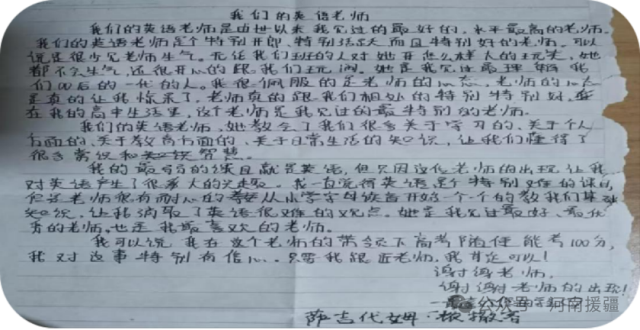 我们的英语老师
我们的英语老师是由世以来我见过的最好的，水平最高的老师。
我们的英语老师是个特别开朗，特别活跃而且特别好的老师。可以
说是很少见老师生气。无论我们班的人对她开怎么样人的玩笑，她
都不会生气，还很开心的跟我们玩闹。她是我见过最理解我
们00后的一代的人。我很佩服的是老师的心态，老师的心态
是真的让我惊呆了，老师真的跟我们相处的特别特别好，在
在我的高中生活里，这个老师是我见过的最特别的老师。
我们的英语老师，她教会了我们很多关于学习的、关于个人
方面的、关于教育方面的、关于日常生活的知识，让我们懂得了
很多常识和智慧。
我的最弱的科目就是英语，但只因这位老师的出现，让我
对英语产生了很大的兴趣。我一直觉得英语是个特别难的课目，
但是老师很有耐心的从小学字母级音开始一个个的教我们基础
知识，让我消取了英语很难的观点。她是我见过最好、最优
秀的老师，也是我最喜欢的老师。
我可以说我在这个老师的带领下高考随便能考100分，
我对这事特别有信心。只要我跟近老师，我肯定可以！
谢谢老师。
谢谢老师的出现！
公众号·河南援疆
萨吉代姆·